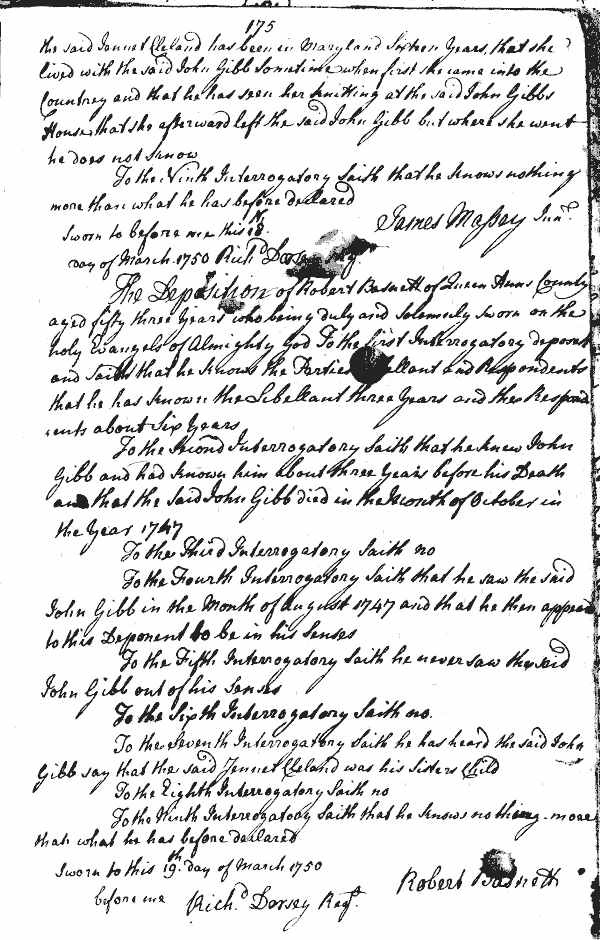 175
the said Jennet Cleland has been in Maryland Sixteen Years, that she
lived with the said John Gibb Sometime when first she came into the
Countrey and that he has seen her knitting at the said John Gibbs
House, that she afterward left the said John Gibb but where she went
he does not know
To the Ninth Interrogatory Saith that he knows nothing
more than what he has before declared
Sworn to before me this 18th James Massey Junr.
day of March 1750 Richd. Dorsey Regr.
The Deposition of Robert Basnett of Queen Anns County
aged fifty three Years who being duly and Solemnly Sworn on the
holy Evangels of Almighty God To the first Interrogatory deposeth
and Saith that he knows the Parties Libellant and Respondents
that he has known the Libellant three Years and the Respond
ents about Six Years
To the Second Interrogatory Saith that he knew John
Gibb and had known him about three Years before his Death
and that the said John Gibb died in the Month of October in
the Year 1747
To the Third Interrogatory Saith no
To the Fourth Interrogatory Saith that he saw the said
John Gibb in the Month of August 1747 and that he then appeared
to this Deponent to be in his Senses
To the Fifth Interrogatory Saith he never saw the said
John Gibb out of his Senses
To the Sixth Interrogatory Saith no.
To the Seventh Interrogatory Saith he has heard the said John
Gibb say that the said Jennet Cleland was his Sisters Child
To the Eighth Interrogatory Saith no
To the Ninth Interrogatory Saith that he knows nothing more
than what he has before declared
Sworn to this 19th. day of March 1750
before me Richd. Dorsey Regr. Robert Basnett